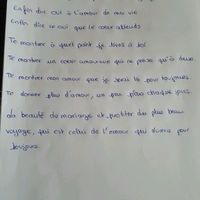 Enfin dire oui à l'amour de ma vie
Enfin dire ce oui que le cœur attends
Te montrer à quel point je tiens à toi
Te montrer un cœur amoureux qui ne pense qu'à deux.
Te montrer mon amour que je serai là pour toujours.
Te donner plus d'amour, un peu plus chaque jours.
La beauté du mariage et profiter du plus beau
voyage, qui est celui de l'amour qui vivera pour
toujours.